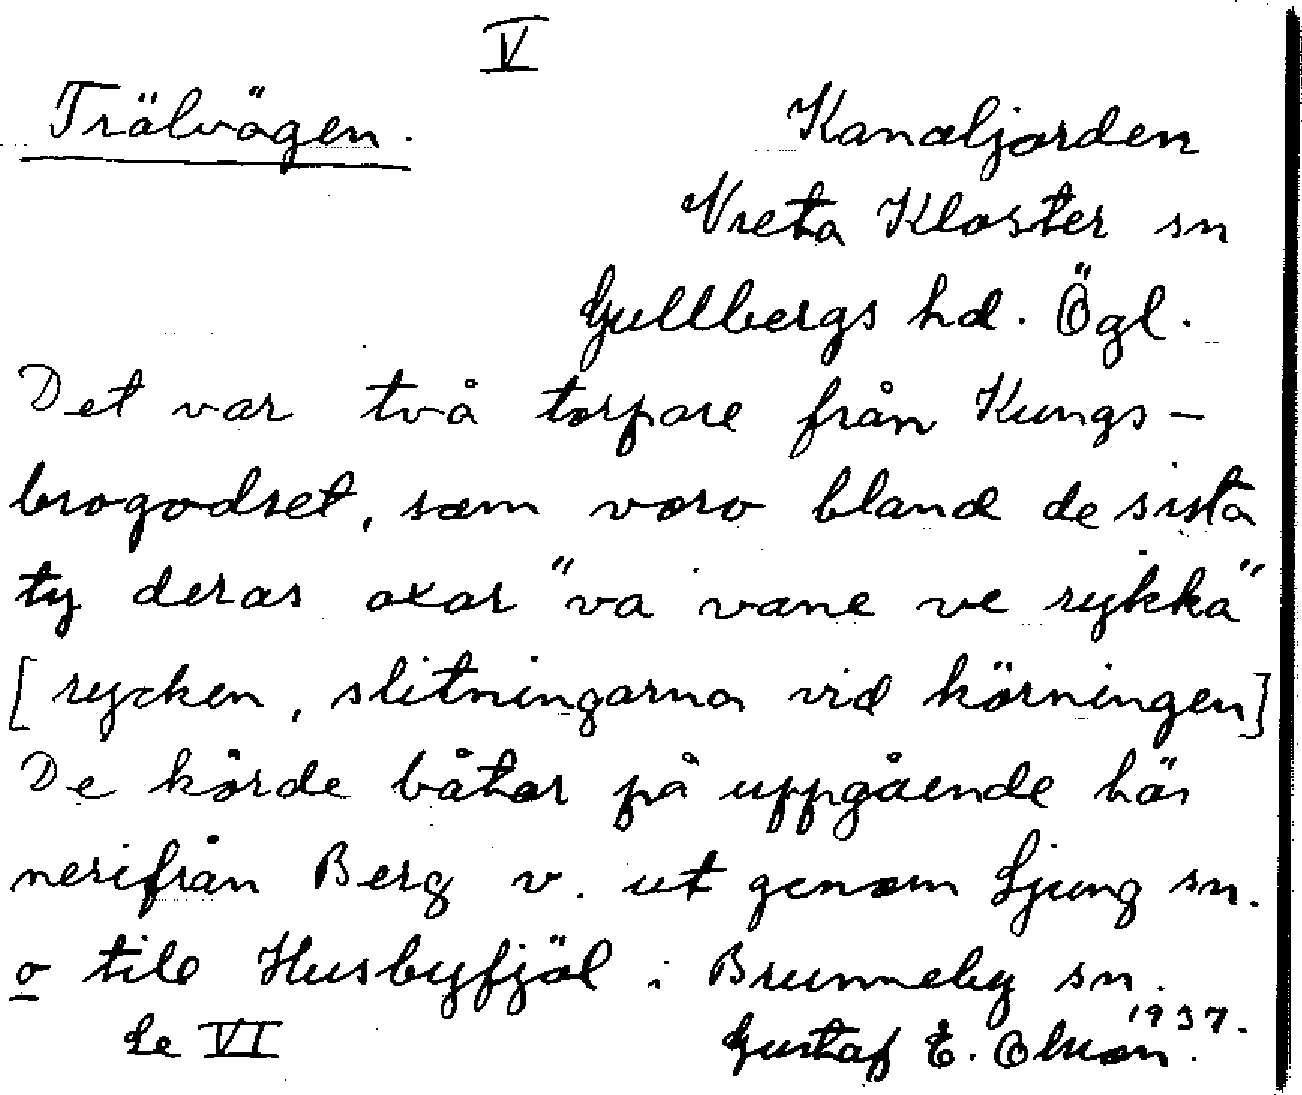 V
Trälvägen.
Kanaljorden
Vreta Kloster sn
Gullbergs hd. Ögl.
Det var två torpare från Kungs-
brogodset, som voro bland de sista
ty deras oxar "va vane ve rykka"
[rycken, slitningarna vid körningen]
De körde båtar på uppgående här
nerifrån Berg v. ut genom Ljung sn.
o till Husbyfjöl i Brunneby sn.
Se VI
Gustaf E. Olsson. 1937.